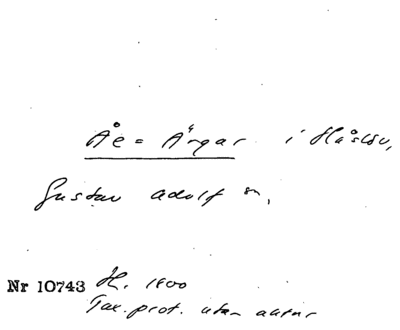 Åe = Ängar i Håslöv,
Gustav Adolf sn,
Nr 10743 H. 1800
Tax. prot. utan aktnr